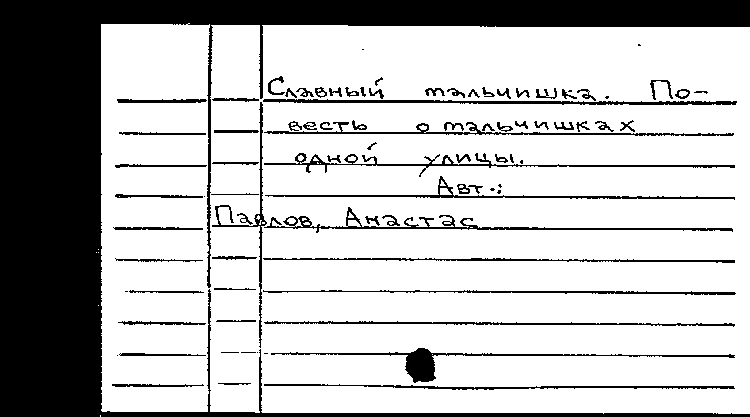 Славный мальчишка. По-
весть о мальчишках
одной улицы.
Авт.:
Павлов, Анастас